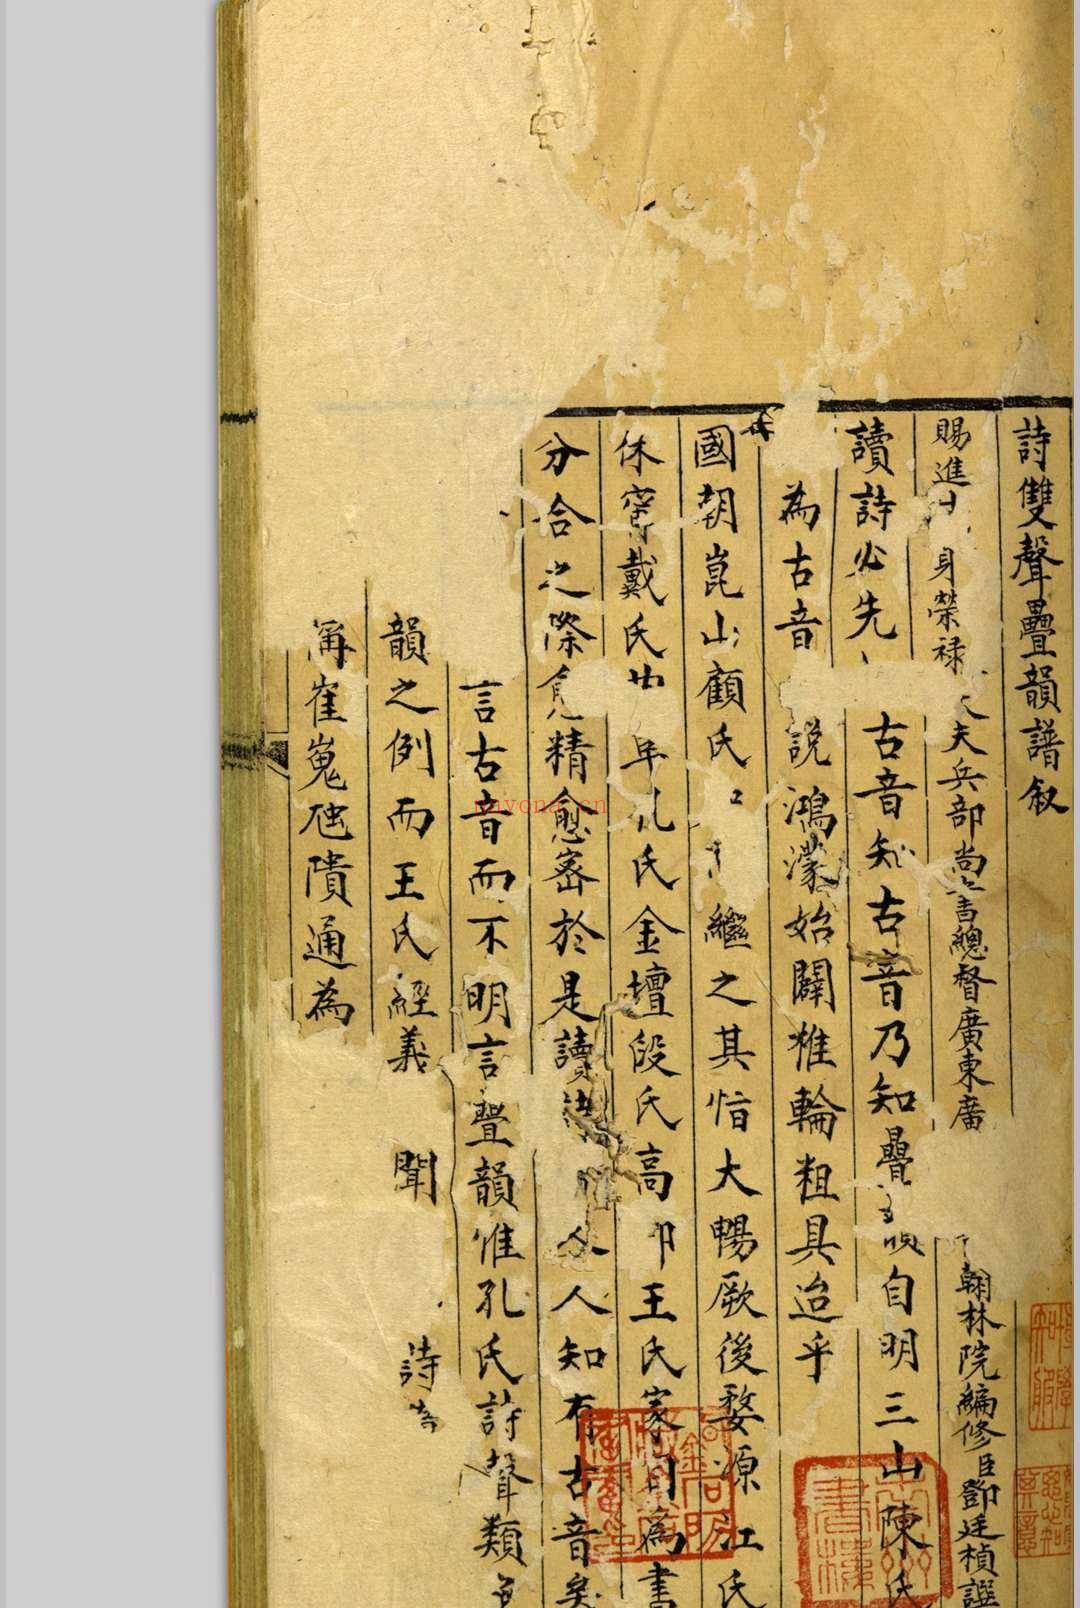 詩雙聲疊韻譜敘
賜進 身榮禄大夫兵部尚書總督廣東廣 翰林院編修臣鄧廷楨譔
讀詩必先 古音知古音乃知疊韻自明三山陳氏
為古音 說鴻濛始闢椎輪粗具迨乎
國朝崑山顧氏 繼之其恉大暢厥後婺源江氏
休寧戴氏 孔氏金壇段氏高郵王氏家自為書
分合之際愈精愈密於是讀詩 人人知有古音矣
言古音而不明言疊韻惟孔氏詩聲類
韻之例而王氏經義 聞 詩
崔嵬虺隤通為
nayona.cn